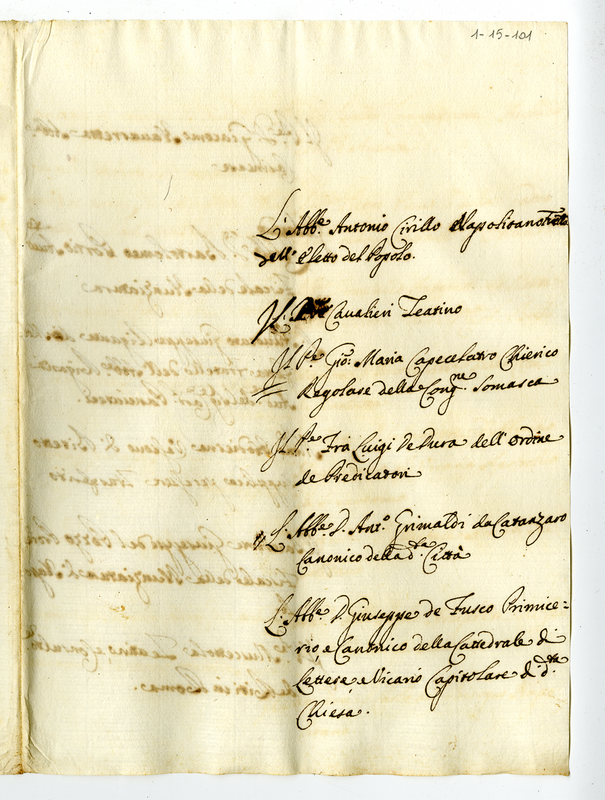 1-15-101
L'Abb.e Antonio Cirillo Napolitano
dell' Eletto del Popolo.
Il P.re Cavalieri Teatino
Il P.re Gio: Maria Capecelatro Chierico
Regolare della Cong.ne Somasca
Il P.re Fra Luigi de Dura dell' ordine
de Predicatori
L'Abb.e D. Ant.o Grimaldi da Catanzaro
Canonico della d.ta Città
L'Abb.e D. Giuseppe de Fusco Primice=
rio, e Canonico della Cattedrale di
Lettere, e Vicario Capitolare di d.ta
Chiesa.